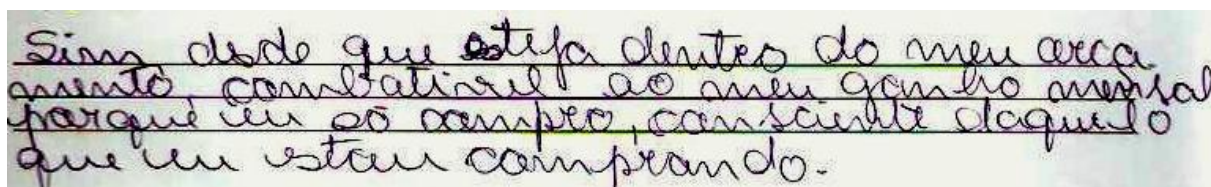 Sim desde que esteja dentro do meu orça
mento, combativel ao meu ganho mensal
porque eu só compro, consciente daquilo
que eu estou comprando.